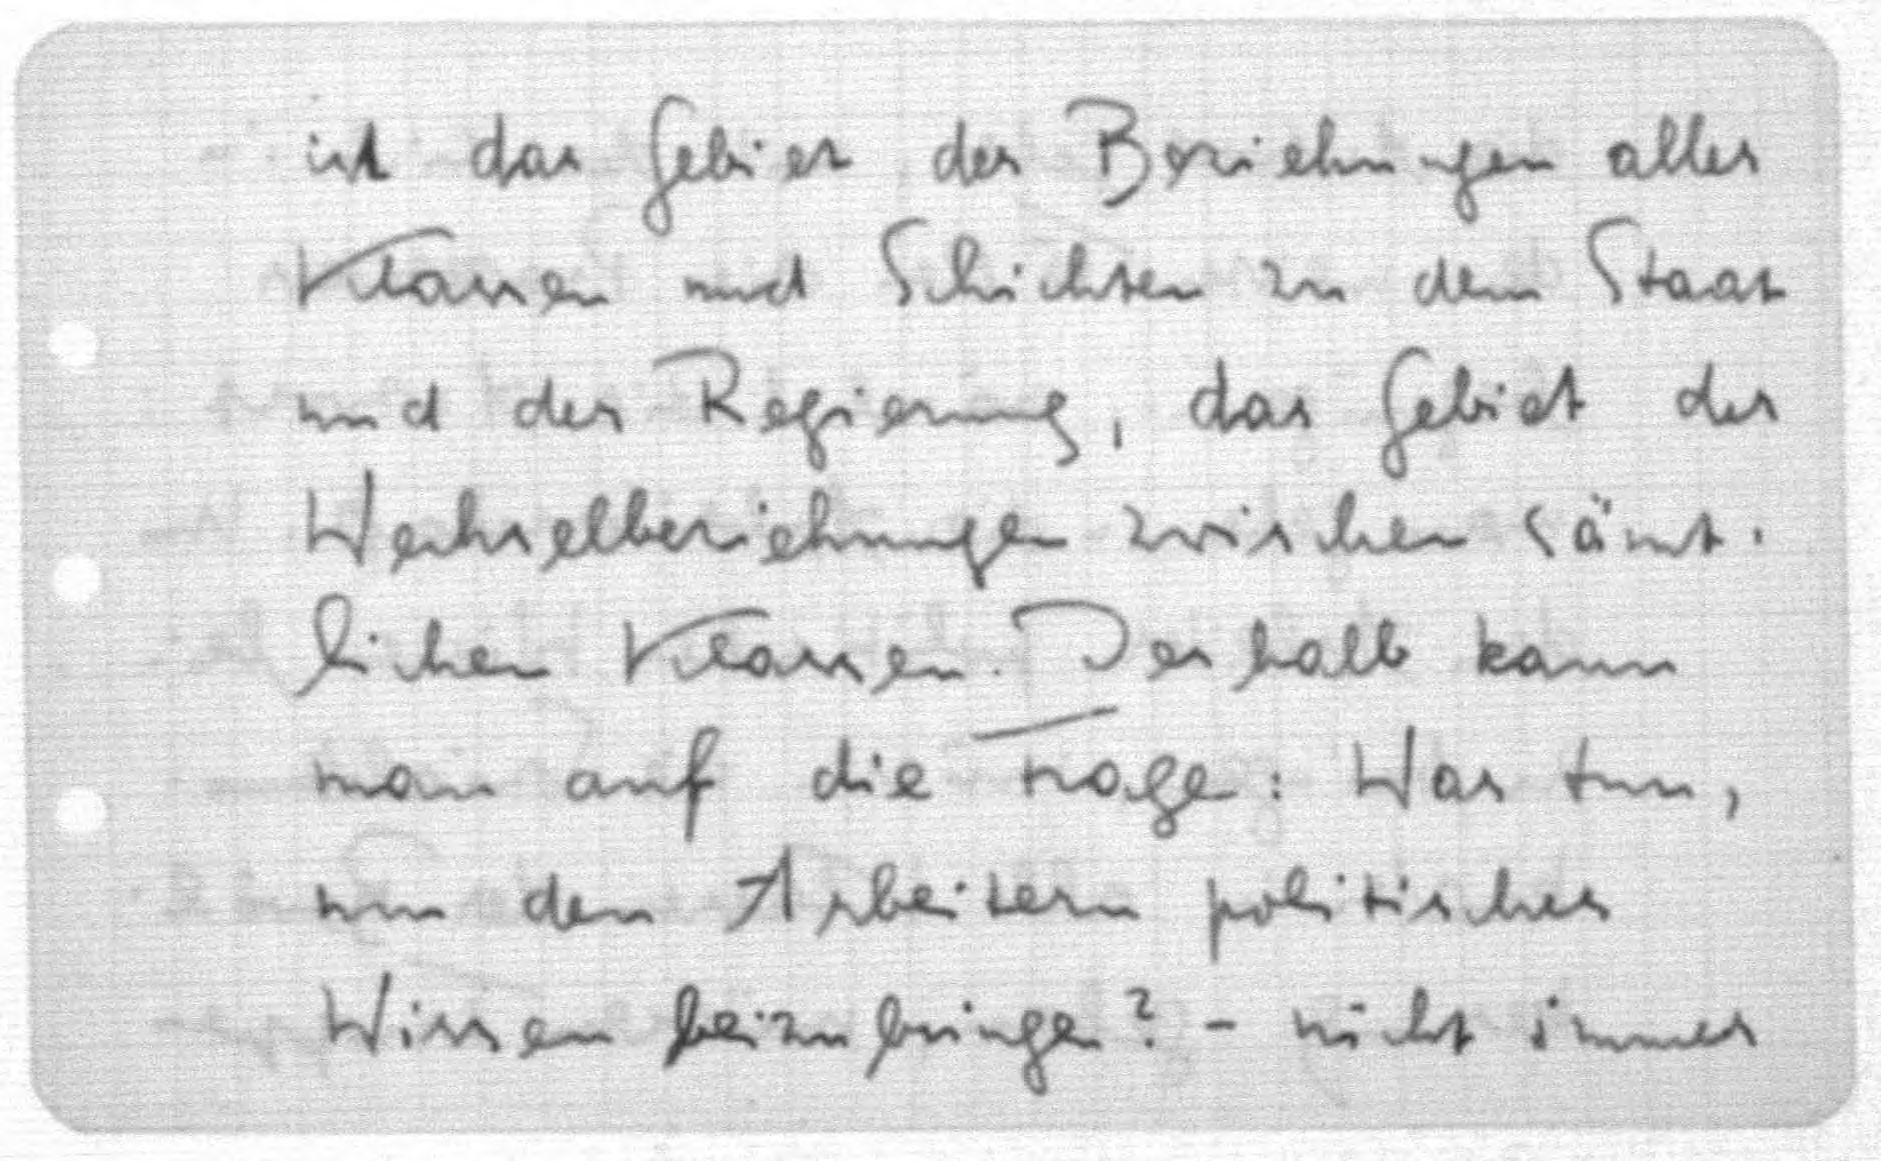 ist das Gebiet der Beziehungen aller
Klassen und Schichten zu dem Staat
und der Regierung, das Gebiet der
Wechselbeziehungen zwischen sämt-
lichen Klassen. Deshalb kann
man auf die Frage: Was tun,
um den Arbeitern politisches
Wissen beizubringen? - nicht immer